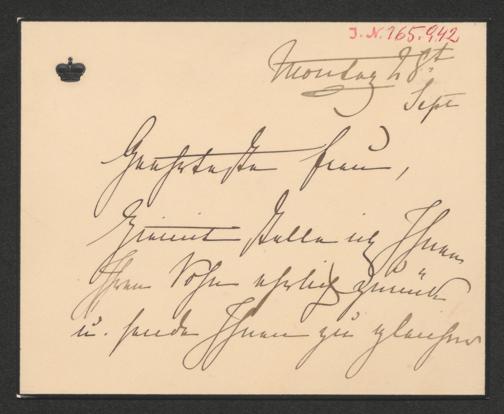 J. N. 165.942
Montag 28t
Sept
Geehrteste Frau,
Hiemit stelle ich Ihnen
Ihren Sohn ehrlich zurück
u. sende Ihnen zu gleicher